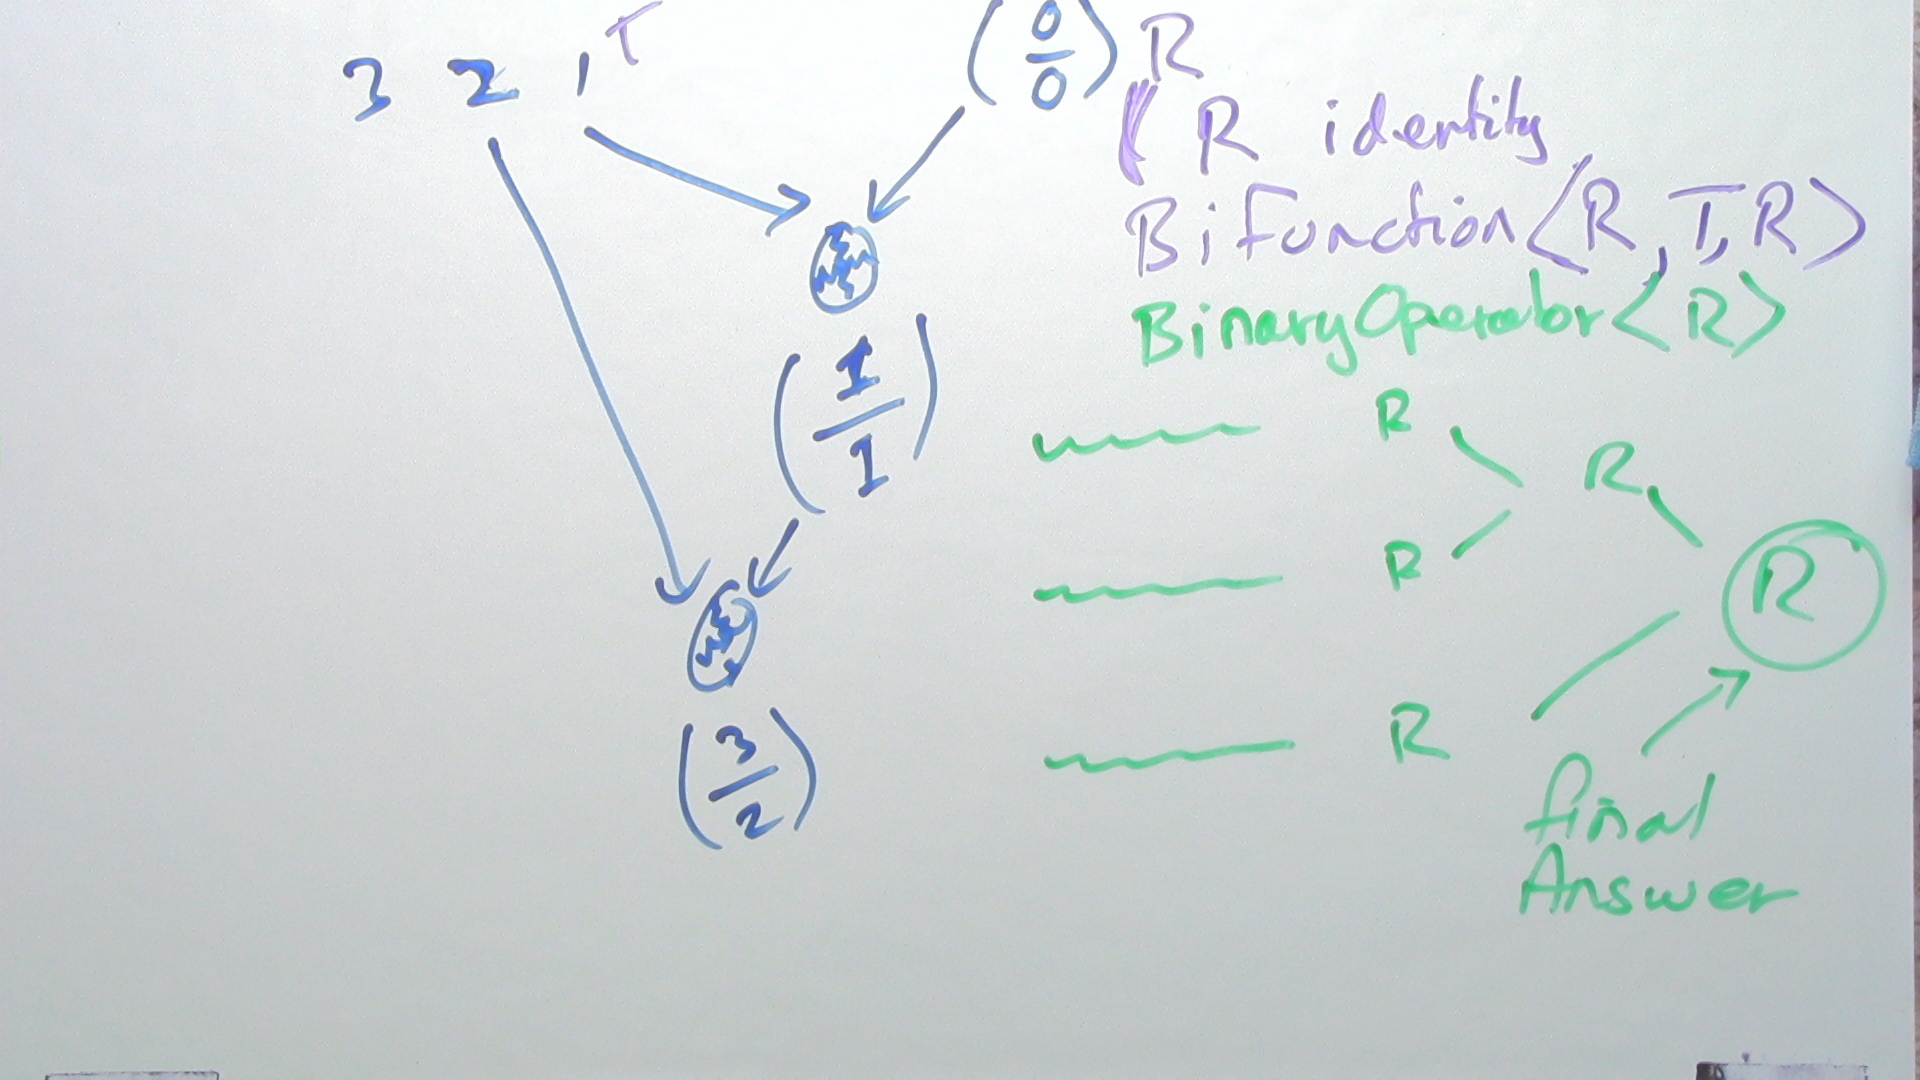 3 2 1 T
0
0
R
R identity
BiFunction<R, T, R>
BinaryOperator<R>
1
1
R
R
R
R
R
3
2
final
Answer